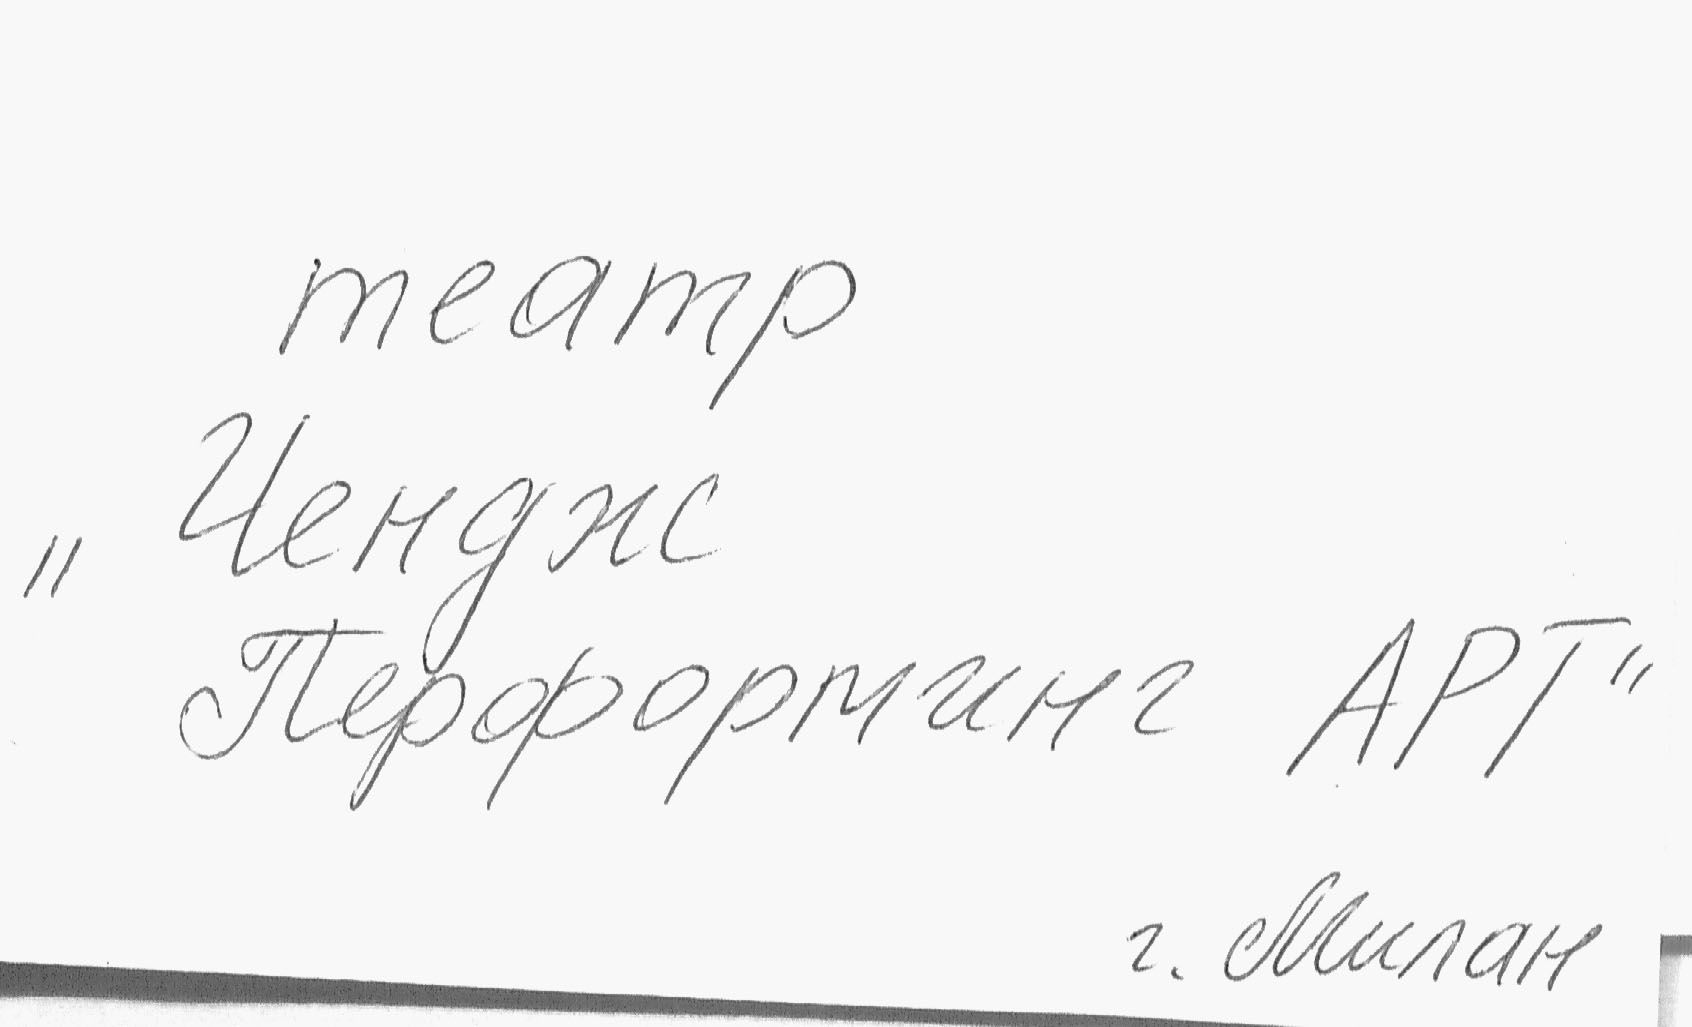 театр
„ Чендж
Перформинг АРТ"
г. Милан